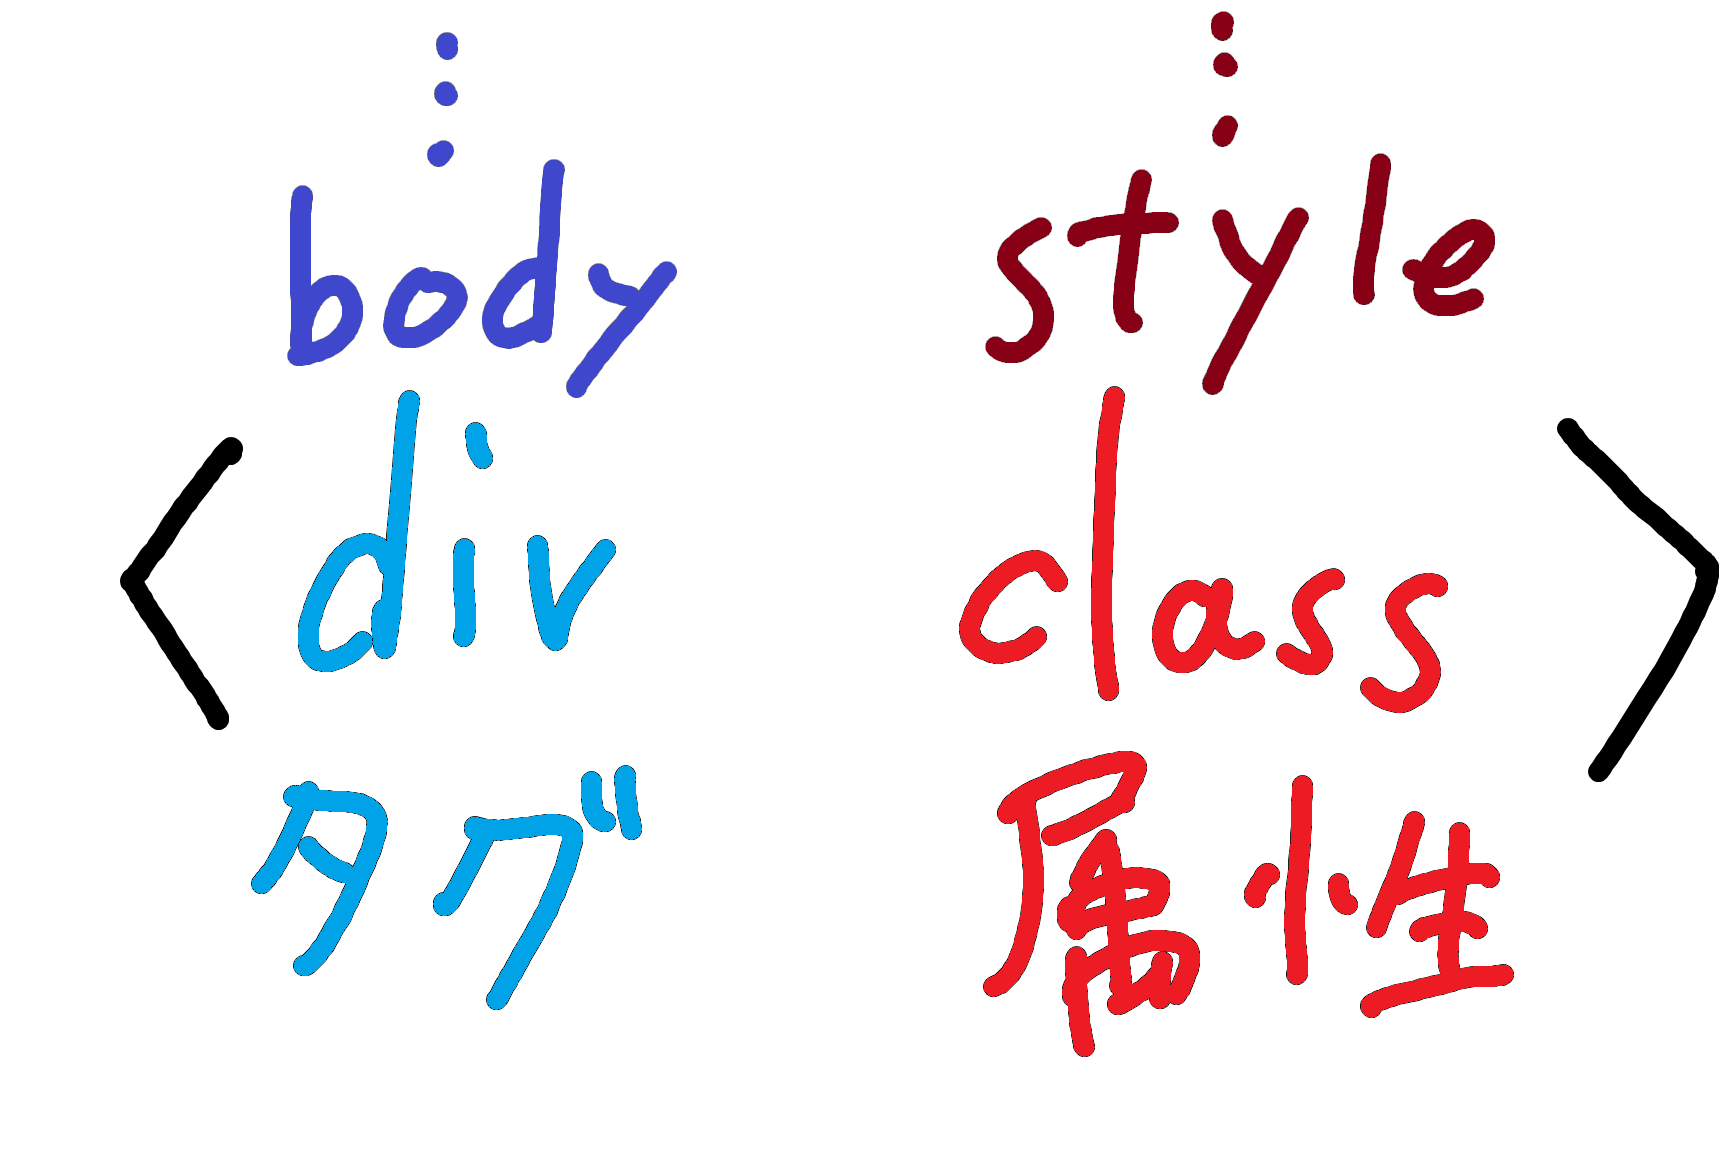 ⋮ ⋮
body style
< div class >
タグ 属性